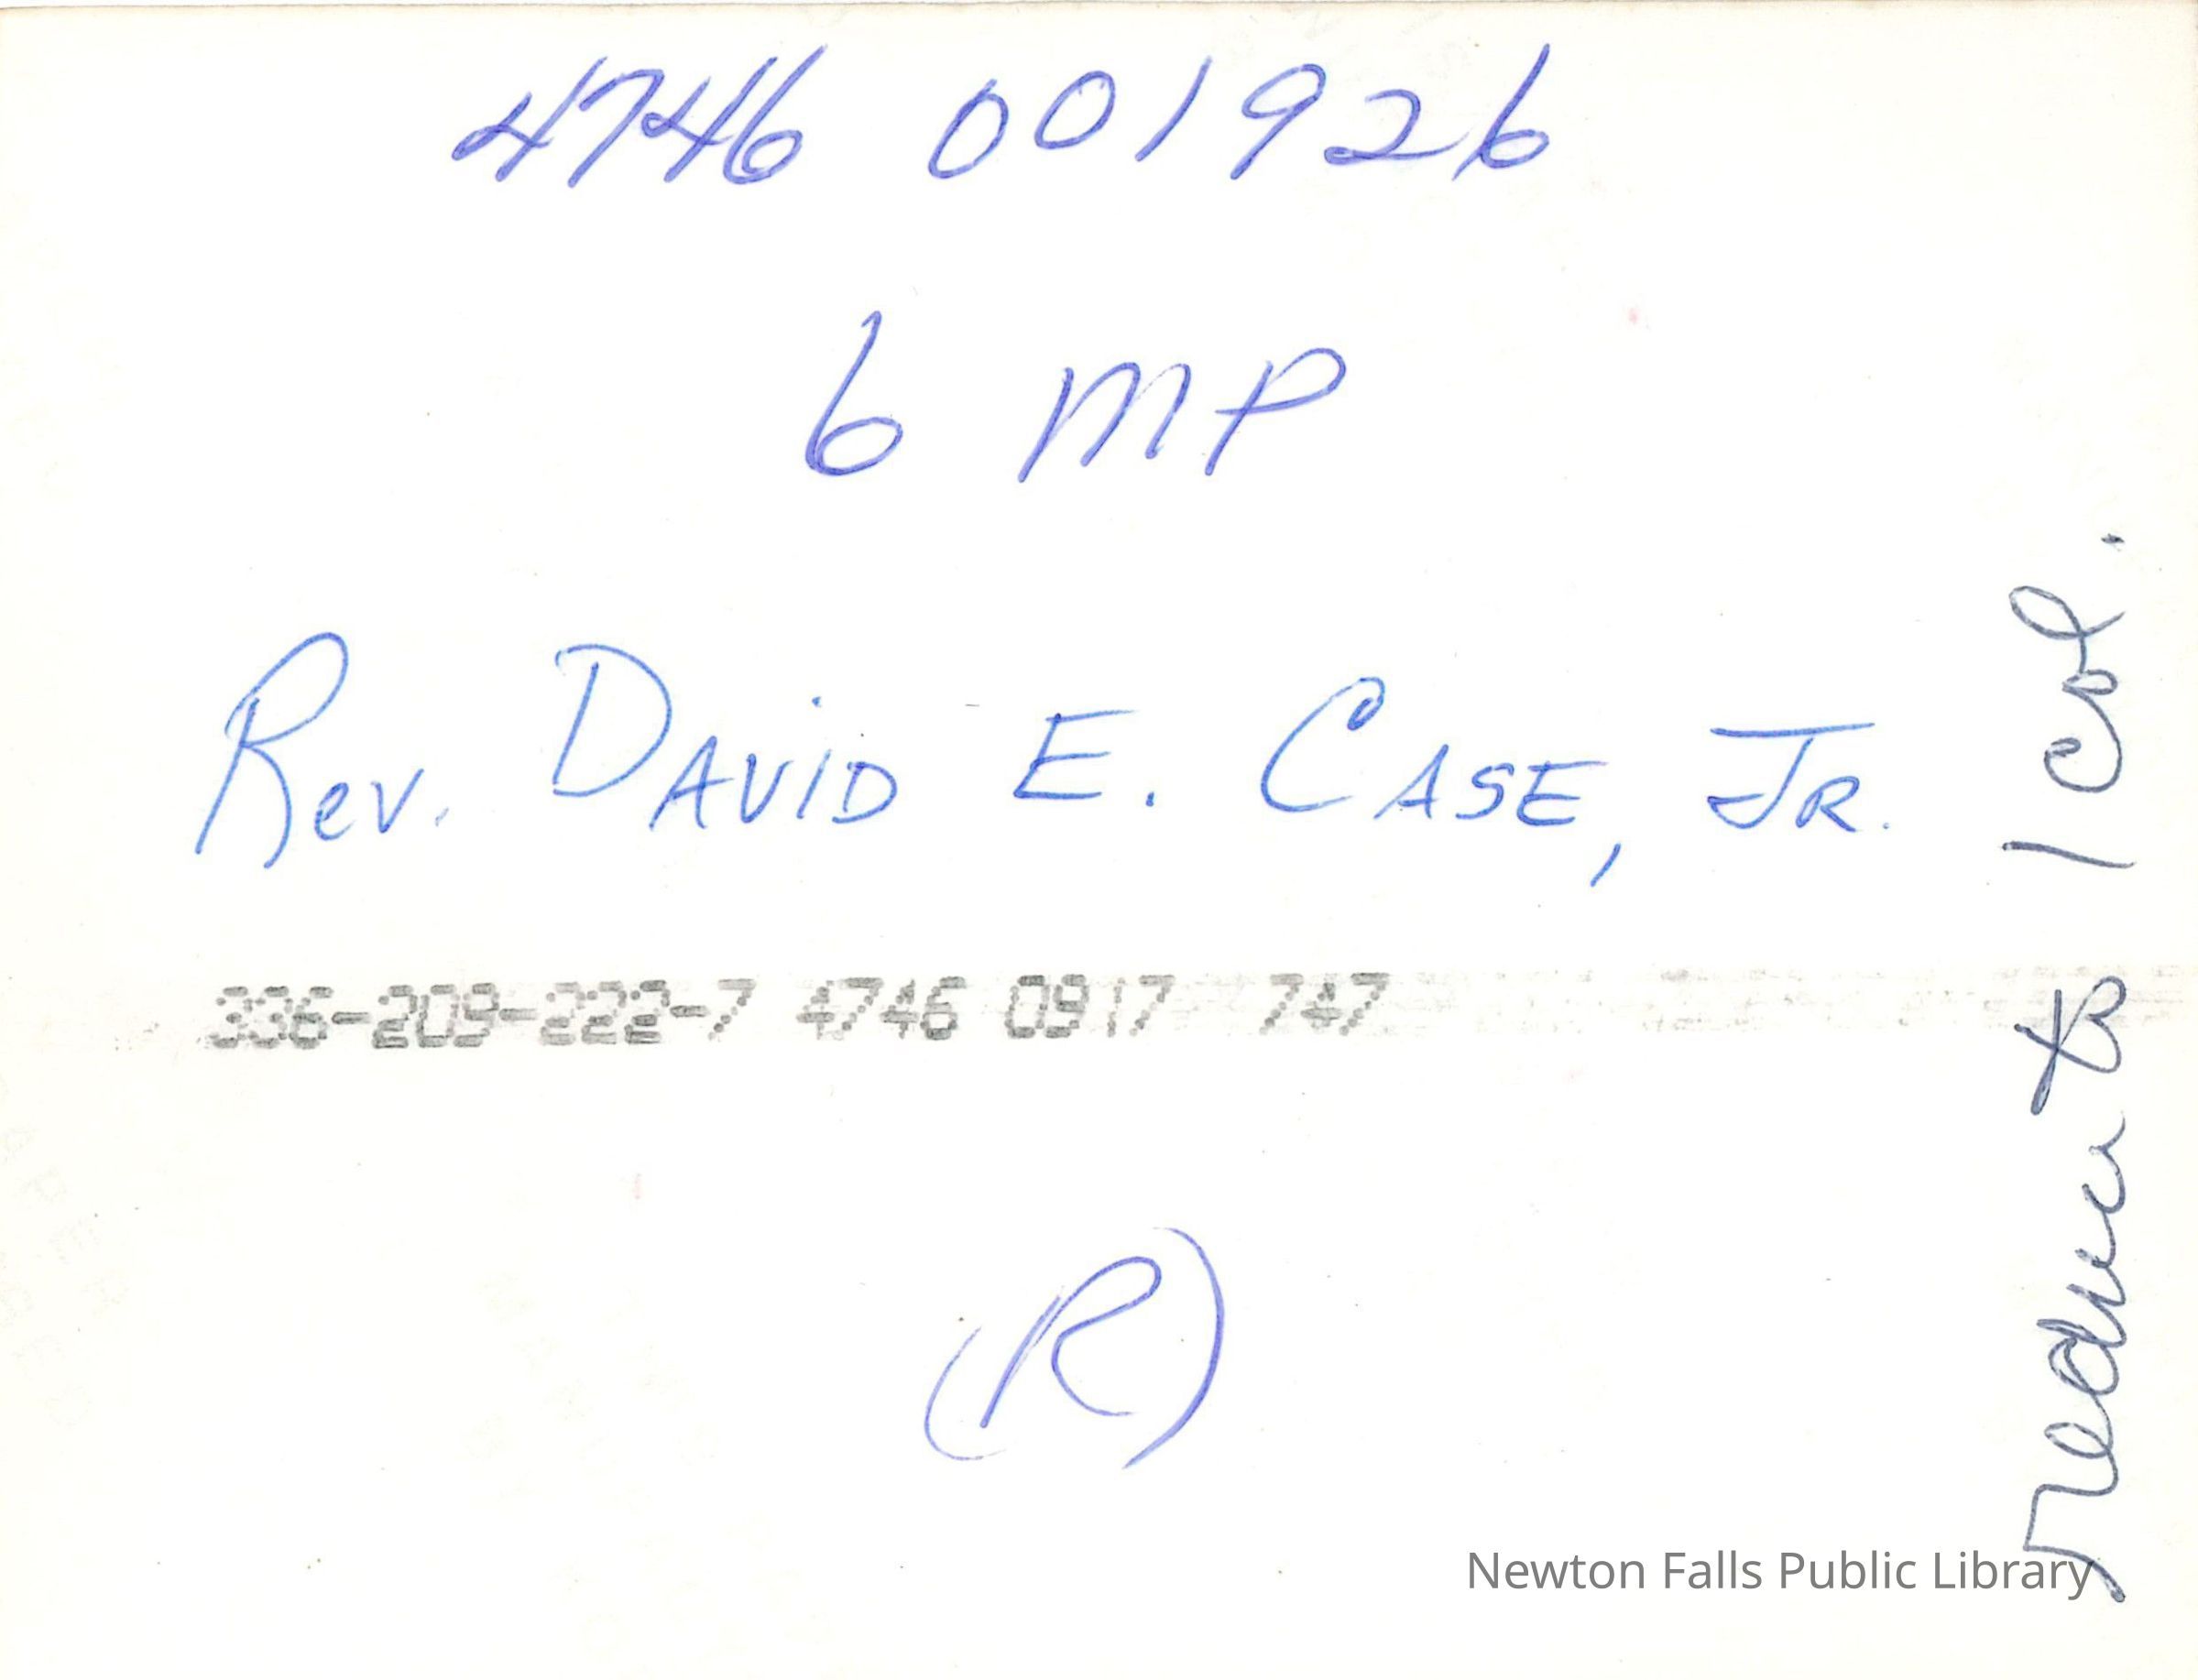 4746 001926
6 MP
Rev. DAVID E. CASE, JR.
336-209-222-7 4746 0917 747
(R)
reduce to 1 col.
Newton Falls Public Library